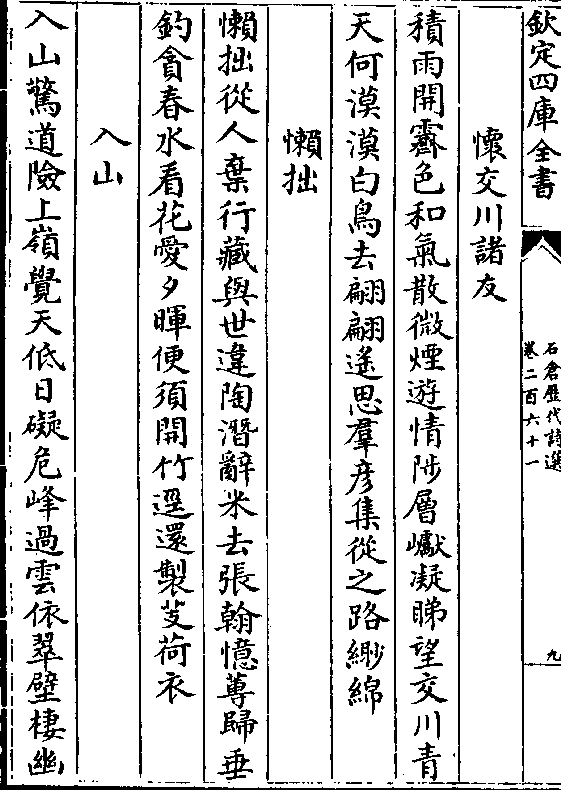 欽定四庫全書
石倉歷代詩選
卷二百六十一
九
懷交川諸友
積雨開霽色和氣散微煙遊情陟層巘凝睇望交川青
天何漠漠白鳥去翩翩遙思羣彦集從之路緲綿
懶拙
懶拙從人棄行藏與世違陶潛辭米去張翰憶蓴歸垂
釣貪春水看花愛夕暉便須開竹逕還製芰荷衣
入山
入山驚道險上嶺覺天低日礙危峰過雲依翠壁棲幽